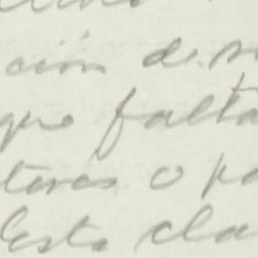 ción de
que falta
teras o pa
Esta cla